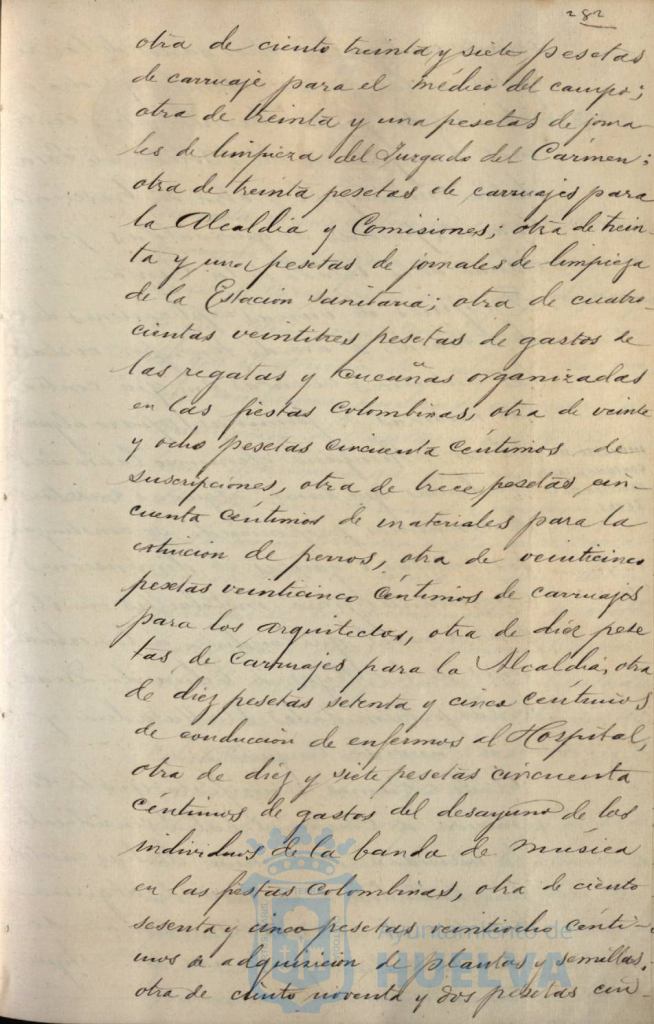 282
otra de ciento treinta y siete pesetas
de carruaje para el médico del campo;
otra de treinta y una pesetas de jorna
les de limpieza del Juzgado del Carmen;
otra de treinta pesetas de carruajes para
la Alcaldia y Comisiones; otra de trein-
ta y una pesetas de jornales de limpieza
de la Estación Sanitaria; otra de cuatro-
cientas veintitres pesetas de gastos de
las regatas y cucañas organizadas
en las fiestas Colombinas, otra de veinte
y ocho pesetas cincuenta céntimos de
suscripciones, otra de trece pesetas cin-
cuenta céntimos de materiales para la
de perros, otra de veinticinco
pesetas veinticinco céntimos de carruajes
para los arquitectos, otra de diez pese
tas de carruajes para la Alcaldia, otra
de diez pesetas setenta y cinco céntimos
de conducción de enfermos al Hospital,
otra de diez y siete pesetas cincuenta
céntimos de gastos del desayuno de los
individuos de la banda de música
en las fiestas Colombinas, otra de ciento
sesenta y cinco pesetas veintiocho cénti-
mos de adquisición de plantas y semillas,
otra de ciento noventa y dos pesetas cin-
Ayuntamiento de
HUELVA